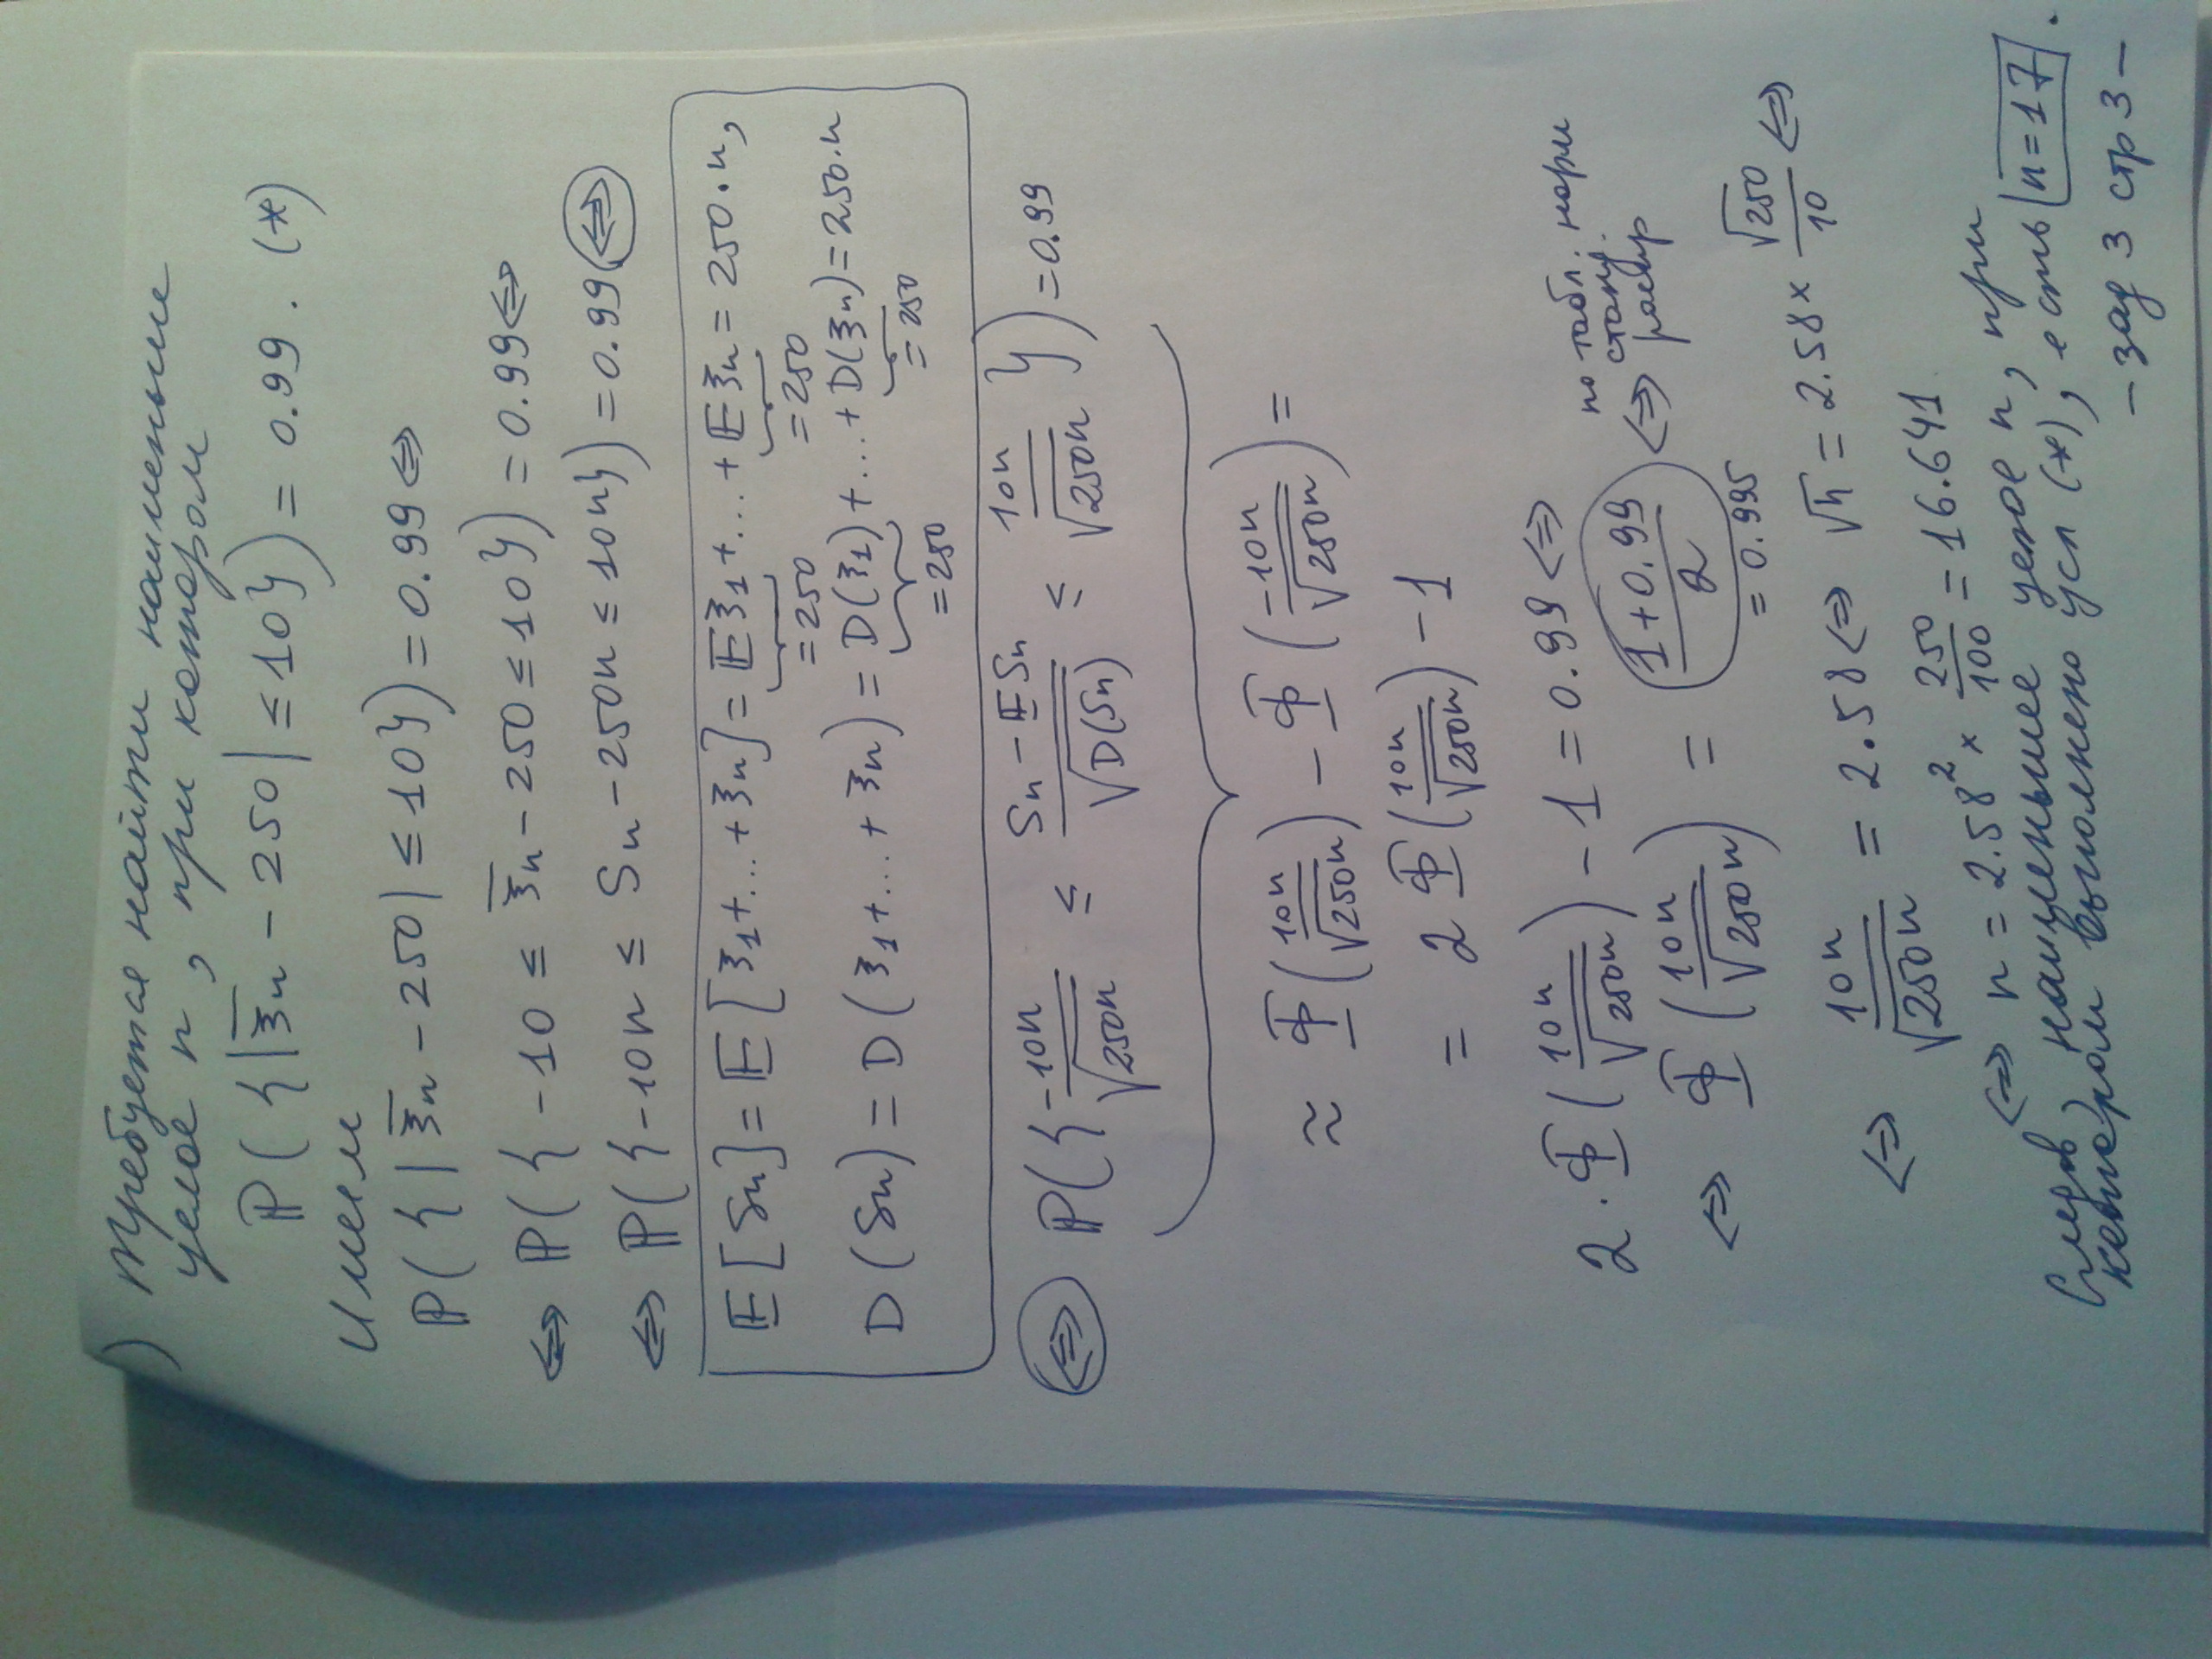 ) Требуется найти наименьше
целое n, при котором
ℙ({|ξ̅n − 250| ≤ 10}) = 0.99. (*)
Имеем
ℙ({|ξ̅n − 250| ≤ 10}) = 0.99 ⇔
⇔ ℙ({−10 ≤ ξ̅n − 250 ≤ 10}) = 0.99 ⇔
⇔ ℙ({−10n ≤ Sn − 250n ≤ 10n}) = 0.99 ⇔
𝔼[Sn] = 𝔼[ξ1+...+ξn] = 𝔼ξ1+...+𝔼ξn = 250·n,
=250 =250
D(Sn) = D(ξ1+...+ξn) = D(ξ1)+...+D(ξn) = 250·n
=250 =250
⇔ ℙ({−10n/√250n ≤ (Sn − 𝔼Sn)/√D(Sn) ≤ 10n/√250n}) = 0.99
≈ Φ(10n/√250n) − Φ(−10n/√250n) =
= 2Φ(10n/√250n) − 1
2·Φ(10n/√250n) − 1 = 0.99 ⇔
по табл. норм
станд.
распр
⇔ Φ(10n/√250n) = (1+0.99)/2 ⇔
= 0.995
⇔ 10n/√250n = 2.58 ⇔ √n = 2.58 × √250/10 ⇔
⇔ n = 2.58² × 250/100 = 16.641
Следов, наименьшее целое n, при
котором выполнено усл (*), есть n=17.
– зад 3 стр 3 –